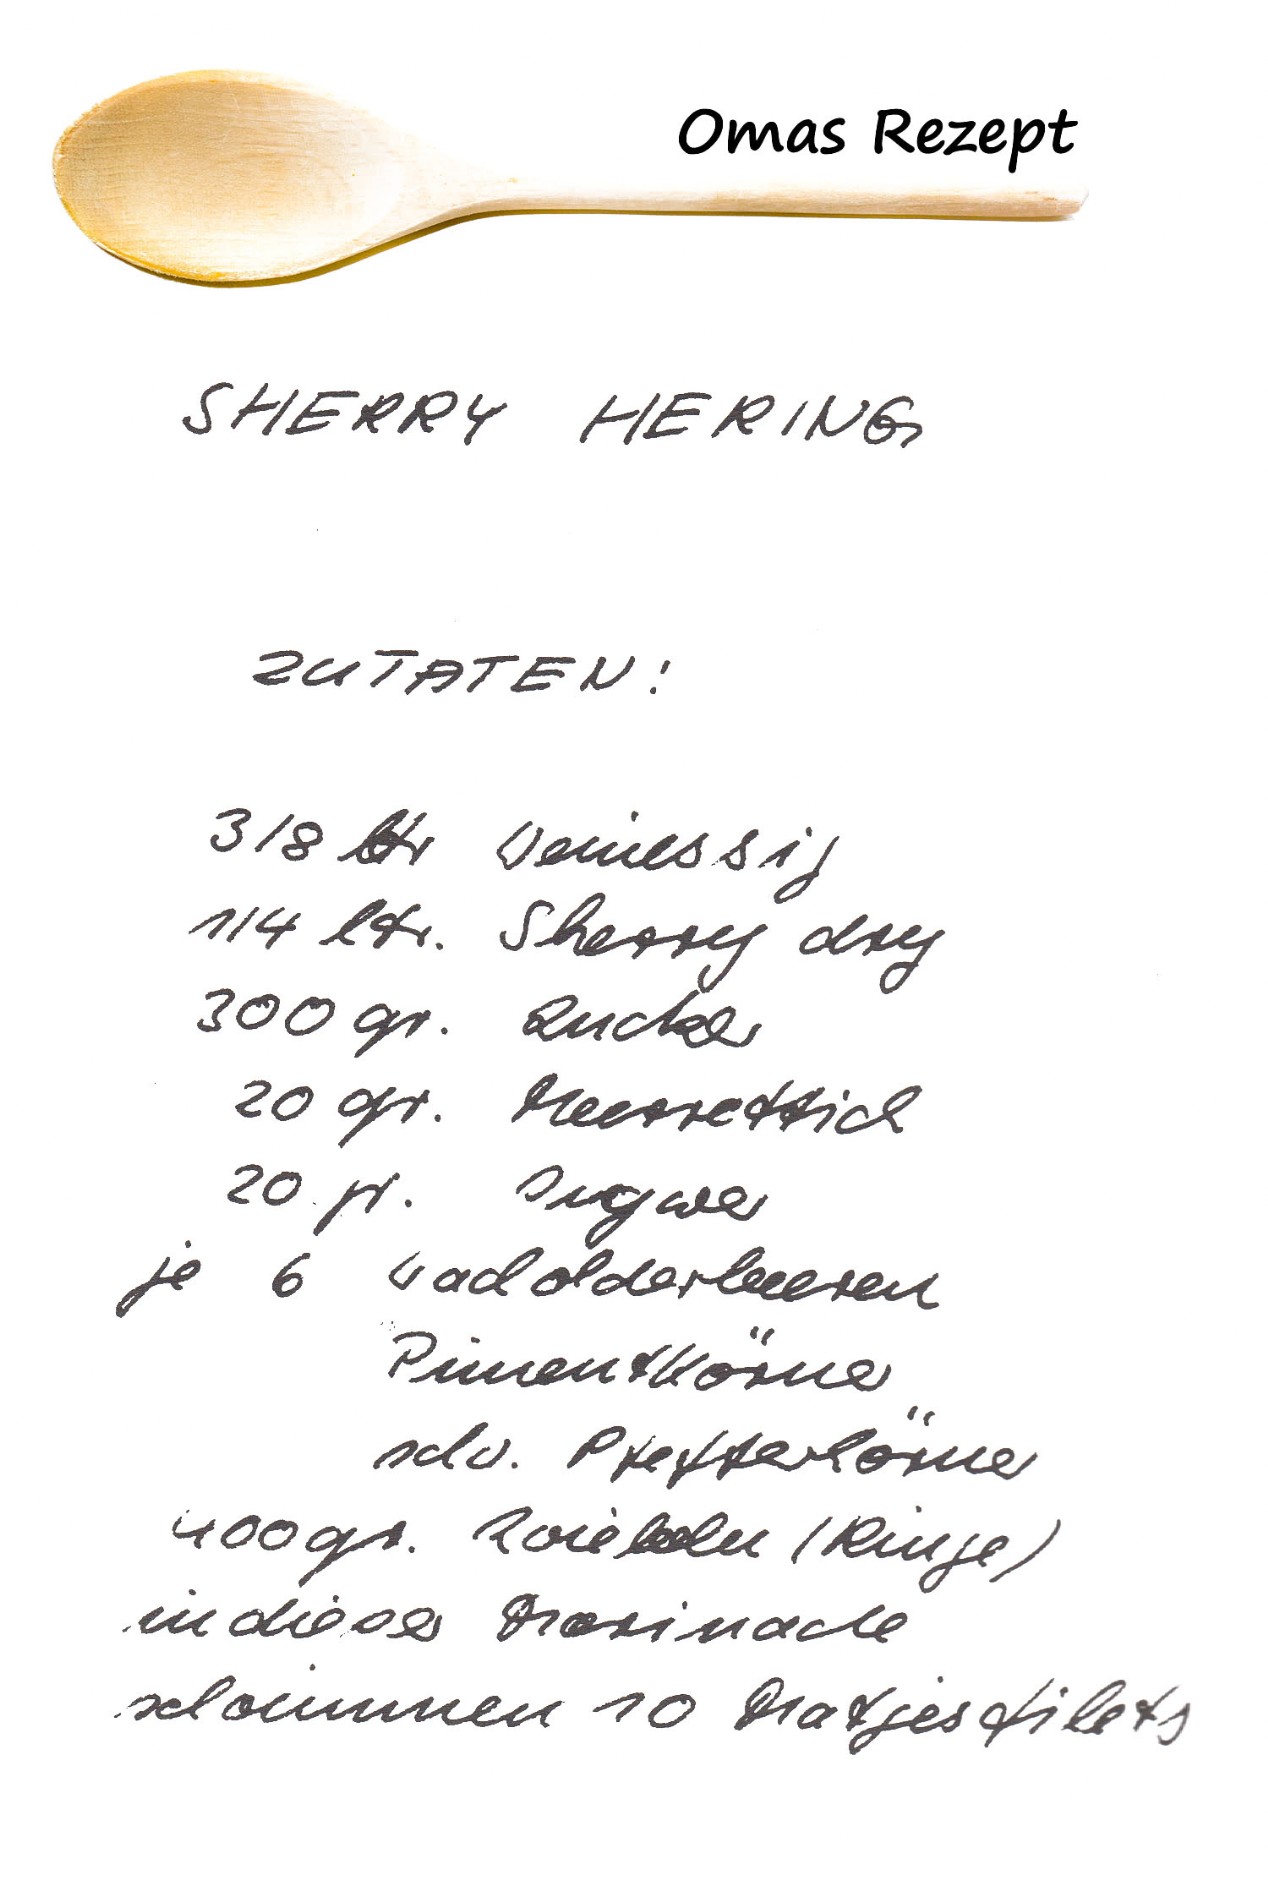 Omas Rezept
SHERRY HERING
ZUTATEN:
3/8 ltr Weinessig
1/4 ltr. Sherry dry
300 gr. Zucker
20 gr. Meerrettich
20 gr. Ingwer
je 6 Wacholderbeeren
Pimentkörner
schw. Pfefferkörner
400 gr. Zwiebeln (Ringe)
in dieser Marinade
schwimmen 10 Matjesfilets